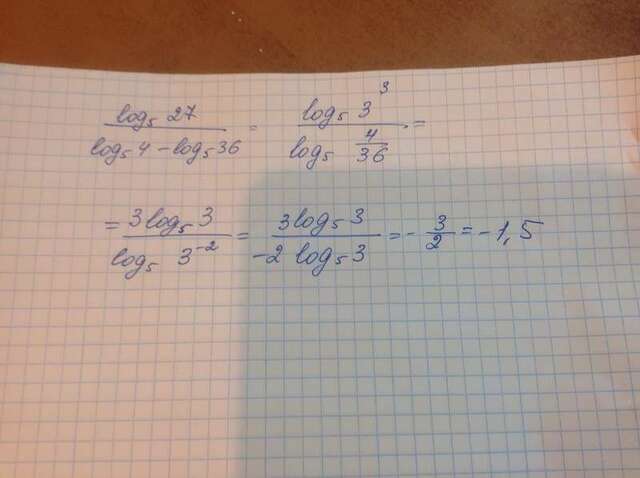 log₅ 27 / (log₅ 4 − log₅ 36) = log₅ 3³ / log₅ (4/36) =
= 3 log₅ 3 / log₅ 3⁻² = 3 log₅ 3 / (−2 log₅ 3) = − 3/2 = −1,5